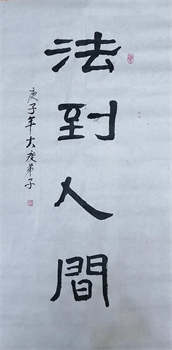 法到人間
庚子年大癡弟子